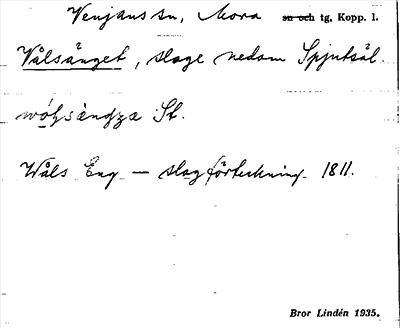 Venjans sn, Mora sn och tg, Kopp. l.
Vålsänget, slage nedom Spjutsål.
St.
Wåls Eng — slagförteckning 1811.
Bror Lindén 1935.